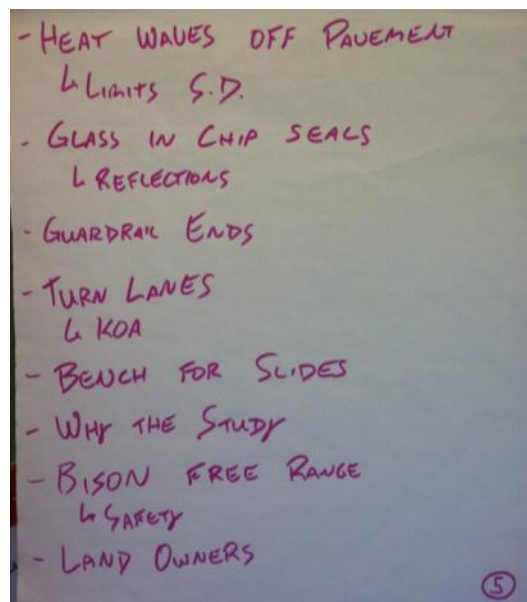 - HEAT WAVES OFF PAVEMENT
↳ LIMITS S.D.
- GLASS IN CHIP SEALS
↳ REFLECTIONS
- GUARDRAIL ENDS
- TURN LANES
↳ KOA
- BENCH FOR SLIDES
- WHY THE STUDY
- BISON FREE RANGE
↳ SAFETY
- LAND OWNERS
5